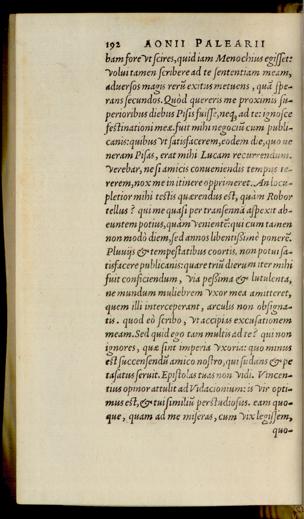 192 AONII PALEARII
bam fore vt scires, quid iam Menochius egisset:
volui tamen scribere ad te sententiam meam,
aduersos magis rerũ exitus metuens, quã spe-
rans secundos. Quòd quereris me proximis su-
perioribus diebus Pisis fuisse, neq, ad te: ignosce
festinationi meæ. fuit mihi negociũ cum publi-
canis: quibus vt satisfacerem, eodem die, quo ve
neram Pisas, erat mihi Lucam recurrendum.
Verebar, ne si amicis conueniendis tempus te-
rerem, nox me in itinere opprimeret. An locu-
pletior mihi testis quærendus est, quàm Robor
tellus? qui me quasi per transennã aspexit ab-
euntem potius, quàm venientẽ: qui cum tamen
non modò diem, sed annos libentissimè ponerẽ.
Pluuijs & tempestatibus coortis. non potui sa-
tisfacere publicanis: quare triũ dierum iter mihi
fuit conficiendum, via pessima & lutulenta,
ne mundum muliebrem vxor mea amitteret,
quem illi interceperant, arculis non obsigna-
tis. quod eò scribo, vt accipias excusationem
meam. Sed quid ego tam multis ad te? qui non
ignores, quæ sint imperia vxoria: quo minus
est succensendũ amico nostro, qui sudans & pe
tasatus seruit. Epistolas tuas non vidi. Vincen-
tius opinor attulit ad Vidacionium: is vir opti-
mus est, & tui similiũ perstudiosus. eam quo-
que, quam ad me miseras, cum vix legissem,
quo-